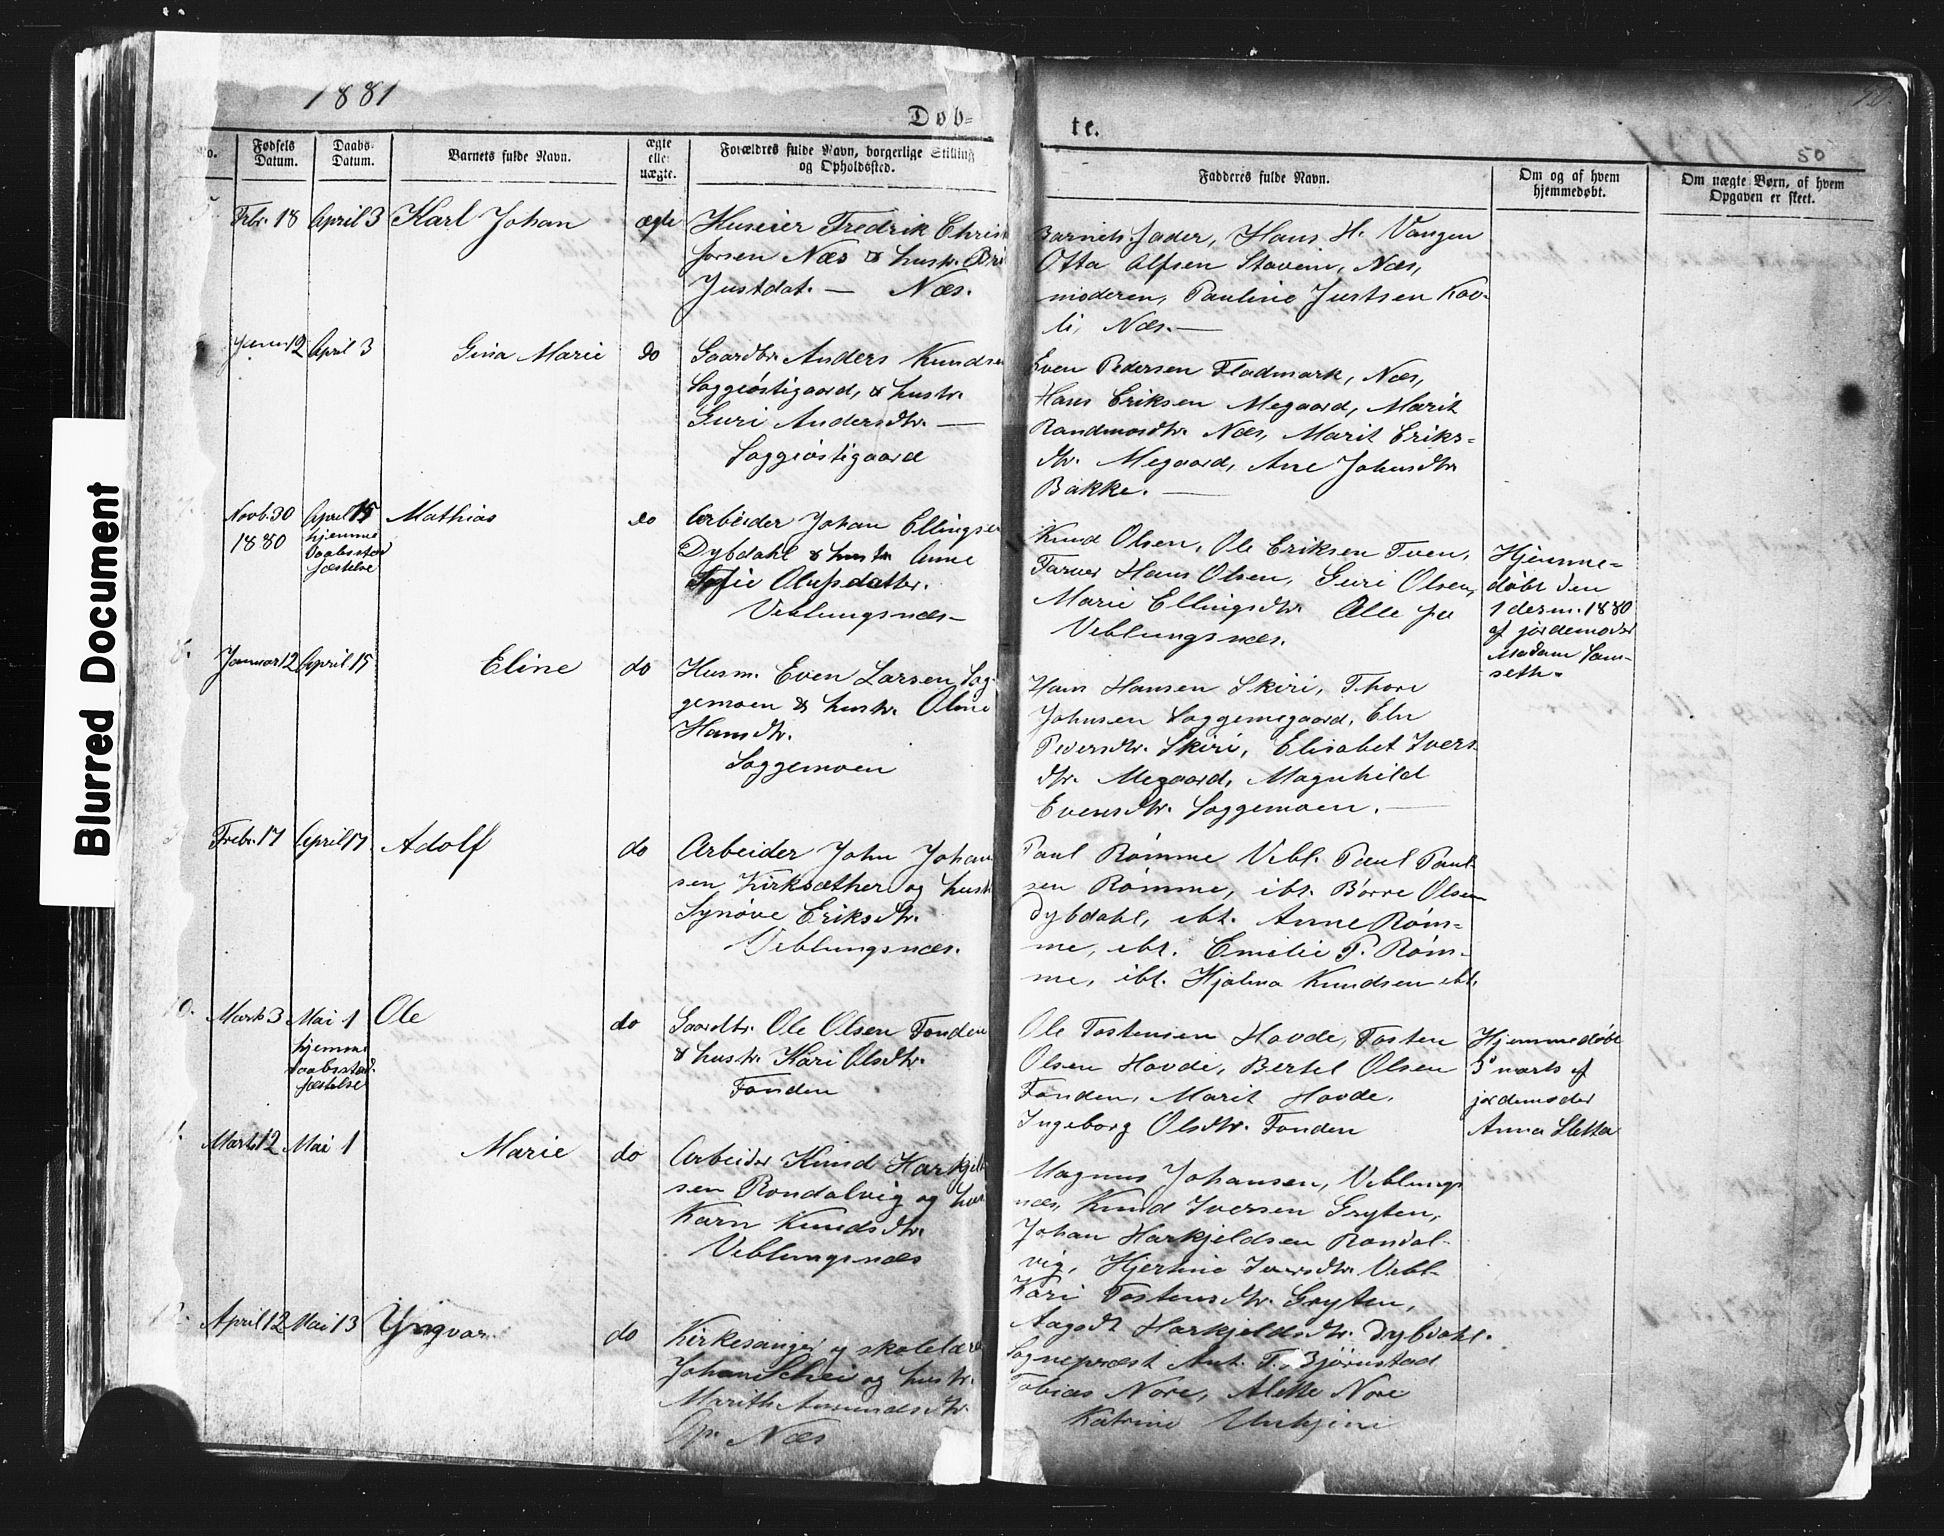 1881
Døb=
te.
50
Blurred Document
No.
Fødsels Datum.
Daabs-Datum.
Barnets fulde Navn.
ægte eller uægte.
Forældres fulde Navn, borgerlige Stilling og Opholdssted.
Fadderes fulde Navn.
Om og af hvem hjemmedøbt.
Om uægte Børn, af hvem Opgaven er skeet.
Febr. 18 April 3 Karl Johan ægte
Huseier Fredrik Christ
forsen Næs & hustr.
Justdat. — Næs.
Barnets fader, Hans H. Vangen
Otta Alfsen Stavem, Næs,
moderen, Pauline Justsen Kav-
li, Næs. —
Januar 12 April 3 Gina Marie do
Gaardbr. Anders Knudsen
Soggeøstigaard, & hustr.
Guri Andersdtr. —
Soggeøstigaard
Even Pedersen Fladmark, Næs,
Hans Eriksen Megaard, Marit
Næs, Marit Eriks-
dtr. Megaard, Ane Johnsdtr
Bakke. —
Novb. 30 1880
April 15
hjemme
daabsstad
fæstelse
Mathias do
Arbeider Johan Ellingsen
Dybdahl & hustr Anne
Olufsdatter.
Veblungsnæs —
Knud Olsen, Ole Eriksen Tven,
Farver Hans Olsen, Guri Olsen,
Marie Ellingsdtr. Alle fra
Veblungsnæs.
Hjemme=
døbt den
1 decm. 1880
af jordemoder
Madam Sam-
seth.
Januar 12 April 15 Eline do
Husm. Even Larsen Sog-
gemoen & hustr. Oline
Hansdtr.
Soggemoen
Hans Hansen Skiri, Thore
Johnsen Soggemegaard, Eli
Pedersdtr. Skiri, Elisabet Ivers
dtr. Megaard, Magnhild
Evensdtr. Soggemoen. —
Febr. 17 April 17 Adolf do
Arbeider John Johan
sen Kirksæther og hustr
Synøve Eriksdtr.
Veblungsnæs.
Paul Rømme Vebl. Paul Paul
sen Rømme, ibt. Børre Olsen
Dybdahl, ibt. Anne Røm-
me, ibt. Emilie P. Røm-
me, ibt. Hjalma Knudsen ibt.
10. Marts 3 Mai 1
hjemme
daabsstad
fæstelse
Ole do
Gaardbr. Ole Olsen Fonden
& hustr. Kari Olsdtr.
Fonden
Ole Tostensen Hovde, Tosten
Olsen Hovde, Bertel Olsen
Fonden, Marit Hovde,
Ingeborg Olsdtr. Fonden
Hjemmedøbt
5 marts af
jordemoder
Anna Sletta
Marts 12 Mai 1 Marie do
Arbeider Knud Harkjel
sen Rondalvig og hus
Karn Knudsdtr.
Veblungsnæs
Magnus Johansen, Veblungs
næs, Knud Iversen Gryten,
Johan Harkjeldsen Rondal-
vig, Hjertine Iversdtr. Vebl-
Kari Tostensdtr. Gryten,
Aagodt Harkjeldsdtr. Dybdahl.
12. April 12 Mai 13 Yngvar do
Kirkesanger og skolelærer
Johan Schei og hustr.
Marith Amundsdtr.
Op. Næs
Sognepræst Ant. T. Bjørnstad
Tobias Nore, Alette Nore
Katrine Unhjem